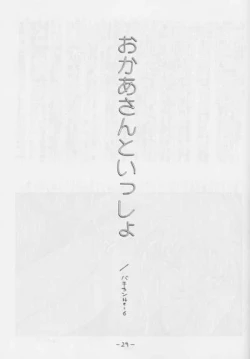 おかあさんといっしょ
-29-